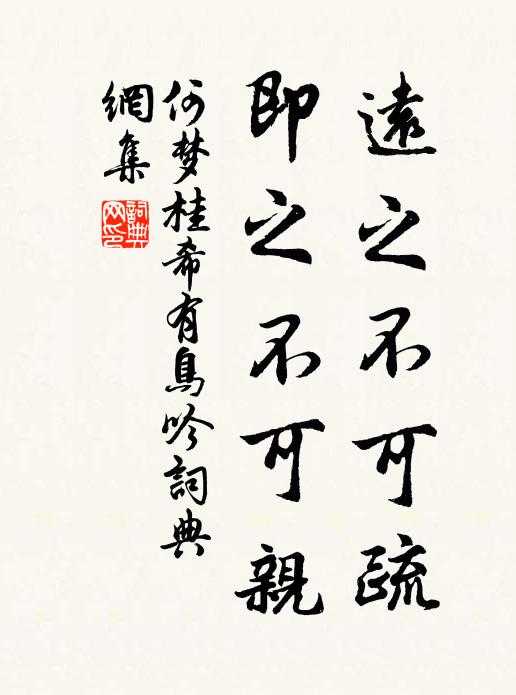 遠之不可疏
即之不可親
何梦桂希有鳥吟詞典
網集
詞典网印